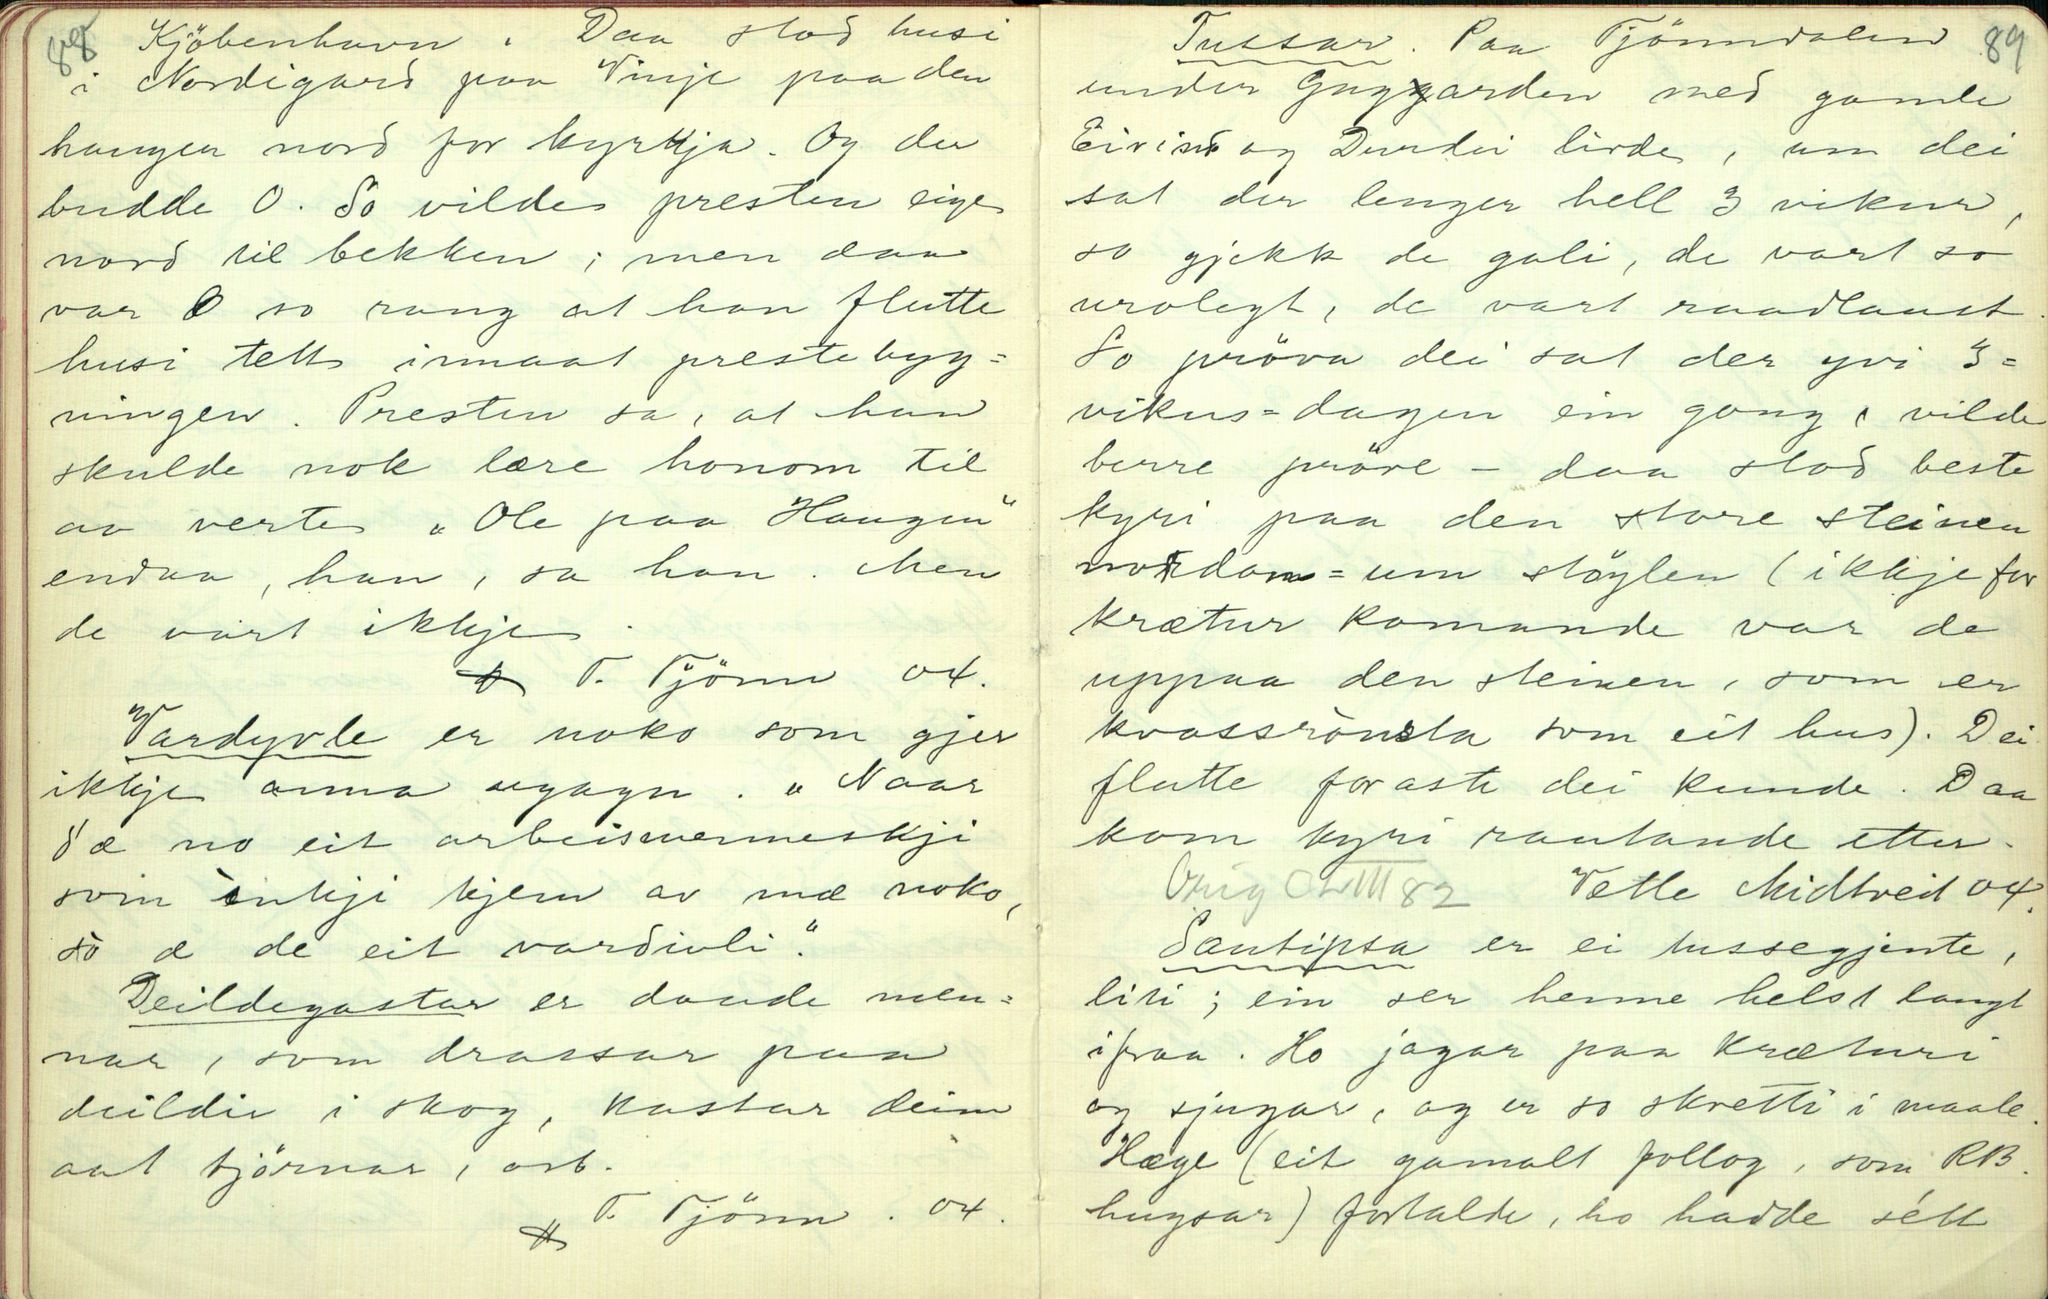 88
Kjöbenhavn. Daa stod husi
i Nordigard paa Vinje paa den
haugen nord for kyrkja. Og der
budde O. So vilde presten eige
nord til bekken; men daa
var O so rang at han flutte
husi tett innaat prestebyg=
ningen. Presten sa, at han
skulde nok lære honom til
av verte "Ole paa Haugen"
endaa, han, sa han. Men
de vart ikkje.
T. Tjönn 04.
Vardyvle er noko som gjer
ikkje anna ugagn. "Naar
dæ no eit arbeismenneskji
som inkji kjem av mæ noko,
so æ de eit vardivli."
Deildegastar er daude men=
nar, som drassar paa
deildir i skog, kastar deim
aat tjörnar, osb.
T. Tjönn. 04.
89
Tussar. Paa Tjönndalen
under Gugarden med gamle
Eivind og Durdei livde, um dei
sat der lenger hell 3 vikur,
so gjekk de gali, de vart so
urolegt, de vart raadlaust.
So pröva dei sat der yvi 3=
vikus=dagen ein gong, vilde
berre pröve – daa stod beste
kyri paa den store steinen
nordan=um stöylen (ikkje for
krætur komande var de
uppaa den steinen, som er
kvassrönsla som eit hus). Dei
flutte foraste dei kunde. Daa
kom kyri rautande etter.
Orig CLVIII 82 Vetle Midtveit 04.
Sæutipsa er ei tussegjente,
liti; ein ser henne helst langt
ifraa. Ho jagar paa kræturi
og sjugar, og er so skretti i maale.
Hæge (eit gamalt follog, som RB.
hugsar) fortalde, ho hadde sétt